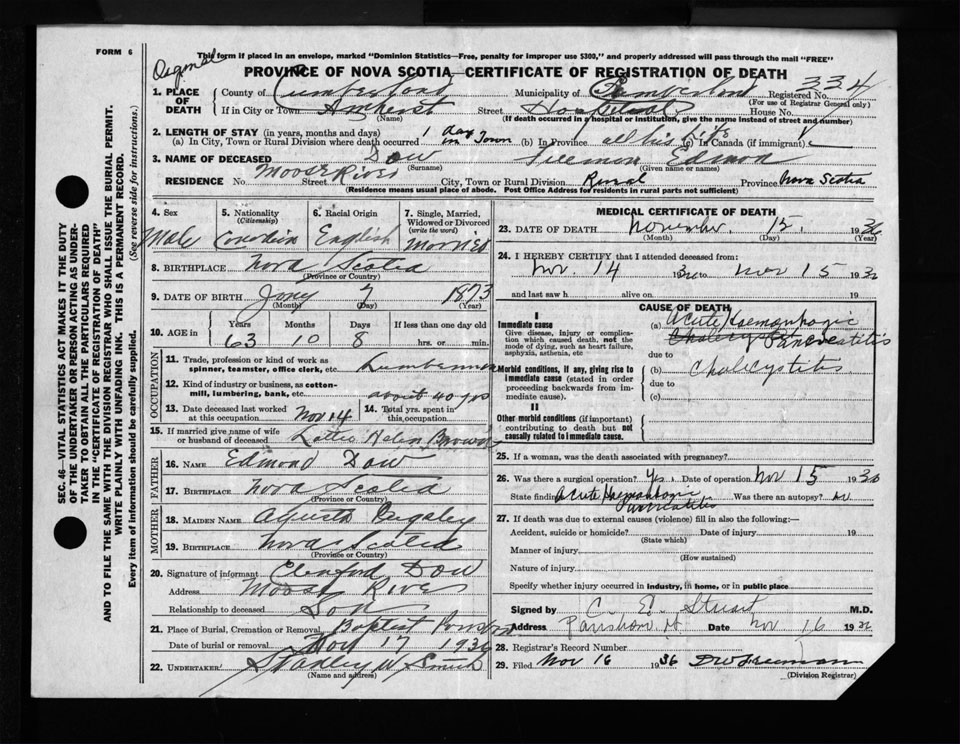 FORM 6
This form if placed in an envelope, marked "Dominion Statistics—Free, penalty for improper use $300," and properly addressed will pass through the mail "FREE"
PROVINCE OF NOVA SCOTIA, CERTIFICATE OF REGISTRATION OF DEATH
334
1. PLACE OF DEATH County of Cumberland Municipality of Cumberland Registered No.
(For use of Registrar General only)
If in City or Town Amherst Street Hospital House No.
(Name) (If death occurred in a hospital or institution, give the name instead of street and number)
2. LENGTH OF STAY (in years, months and days)
(a) In City, Town or Rural Division where death occurred 1 day in Town (b) In Province all his life (c) In Canada (if immigrant)
3. NAME OF DECEASED Dow Edmon
(Surname) (Given name or names)
RESIDENCE No. Moose River Street City, Town or Rural Division Rural Province Nova Scotia
(Residence means usual place of abode. Post Office Address for residents in rural parts not sufficient)
4. Sex 5. Nationality (Citizenship) 6. Racial Origin 7. Single, Married, Widowed or Divorced (write the word)
Male Canadian English Married
8. BIRTHPLACE Nova Scotia
(Province or Country)
9. DATE OF BIRTH Jany 7 1873
(Month) (Day) (Year)
10. AGE in Years Months Days If less than one day old
63 10 8 hrs. or min.
OCCUPATION
11. Trade, profession or kind of work as spinner, teamster, office clerk, etc. Lumberman
12. Kind of industry or business, as cotton-mill, lumbering, bank, etc. about 40 yrs
13. Date deceased last worked at this occupation Nov 14 14. Total yrs. spent in this occupation
15. If married give name of wife or husband of deceased Lottie Helen Brown
FATHER
16. NAME Edmond Dow
17. BIRTHPLACE Nova Scotia
(Province or Country)
MOTHER
18. MAIDEN NAME
19. BIRTHPLACE Nova Scotia
(Province or Country)
20. Signature of informant Dow
Address Moose River
Relationship to deceased Son
21. Place of Burial, Cremation or Removal Baptist
Date of burial or removal Nov 17 1936
22. UNDERTAKER Stanley W Smith
(Name and address)
MEDICAL CERTIFICATE OF DEATH
23. DATE OF DEATH November 15, 1936
(Month) (Day) (Year)
24. I HEREBY CERTIFY that I attended deceased from:
Nov. 14 36 to Nov 15 1936
and last saw h alive on 19
CAUSE OF DEATH
I
Immediate cause
Give disease, injury or complication which caused death, not the mode of dying, such as heart failure, asphyxia, asthenia, etc
(a) Acute Haemorrhagic
due to
Morbid conditions, if any, giving rise to immediate cause (stated in order proceeding backwards from immediate cause).
(b) Cholecystitis
due to
(c)
II
Other morbid conditions (if important) contributing to death but not causally related to immediate cause.
25. If a woman, was the death associated with pregnancy?
26. Was there a surgical operation? Yes. Date of operation Nov 15 1936
State findings Acute Haemorrhagic Pancreatitis Was there an autopsy? no
27. If death was due to external causes (violence) fill in also the following:—
Accident, suicide or homicide? Date of injury 19
(State which)
Manner of injury
(How sustained)
Nature of injury
Specify whether injury occurred in industry, in home, or in public place
Signed by C. E. Stuart M.D.
Address Date Nov 16 1936
28. Registrar's Record Number
29. Filed Nov 16 1936
(Division Registrar)
SEC. 46—VITAL STATISTICS ACT MAKES IT THE DUTY
OF THE UNDERTAKER OR PERSON ACTING AS UNDER-
TAKER TO OBTAIN ALL THE PARTICULARS REQUIRED
IN THE "CERTIFICATE OF REGISTRATION OF DEATH"
AND TO FILE THE SAME WITH THE DIVISION REGISTRAR WHO SHALL ISSUE THE BURIAL PERMIT.
WRITE PLAINLY WITH UNFADING INK. THIS IS A PERMANENT RECORD.
Every item of information should be carefully supplied. (See reverse side for instructions.)